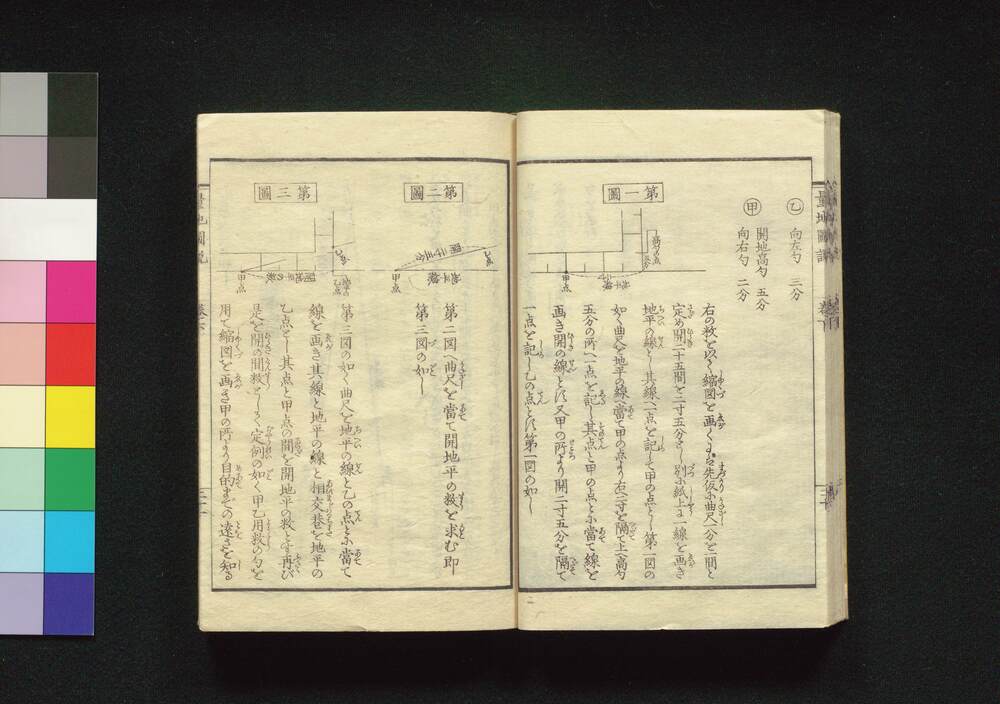 乙
向左勺 三分
甲
開地高勺 五分
向右勺 二分
第一圖
甲点
右の数を以く縮図を画くよは先仮に曲尺一分を一間と
定め開二十五間を二寸五分とし別に紙上に一線を画き
地平の線とし其線へ一点を記して甲の点とし第一図の
如く曲尺を地平の線へ當て甲の点より右へ一寸を隔て上へ高勺
五分の所へ一点を記し其点と甲の点とに當て線を
画き開の線とす又甲の所より開二寸五分を隔て
一点を記し乙の点とす第一図の如し
第二圖
乙点
甲点
第二図へ曲尺を當て開地平の数を求む即
第三図の如し
第三圖
乙点
甲点
第三図の如く曲尺を地平の線と乙の点とに當て
線を画き其線と地平の線と相交る巷を地平の
乙点とし其点と甲点の間を開地平の数とす再び
是を開の間数として定例の如く甲乙用数の勺を
用て縮図を画き甲の所より目的までの遠さを知る
量地圖説